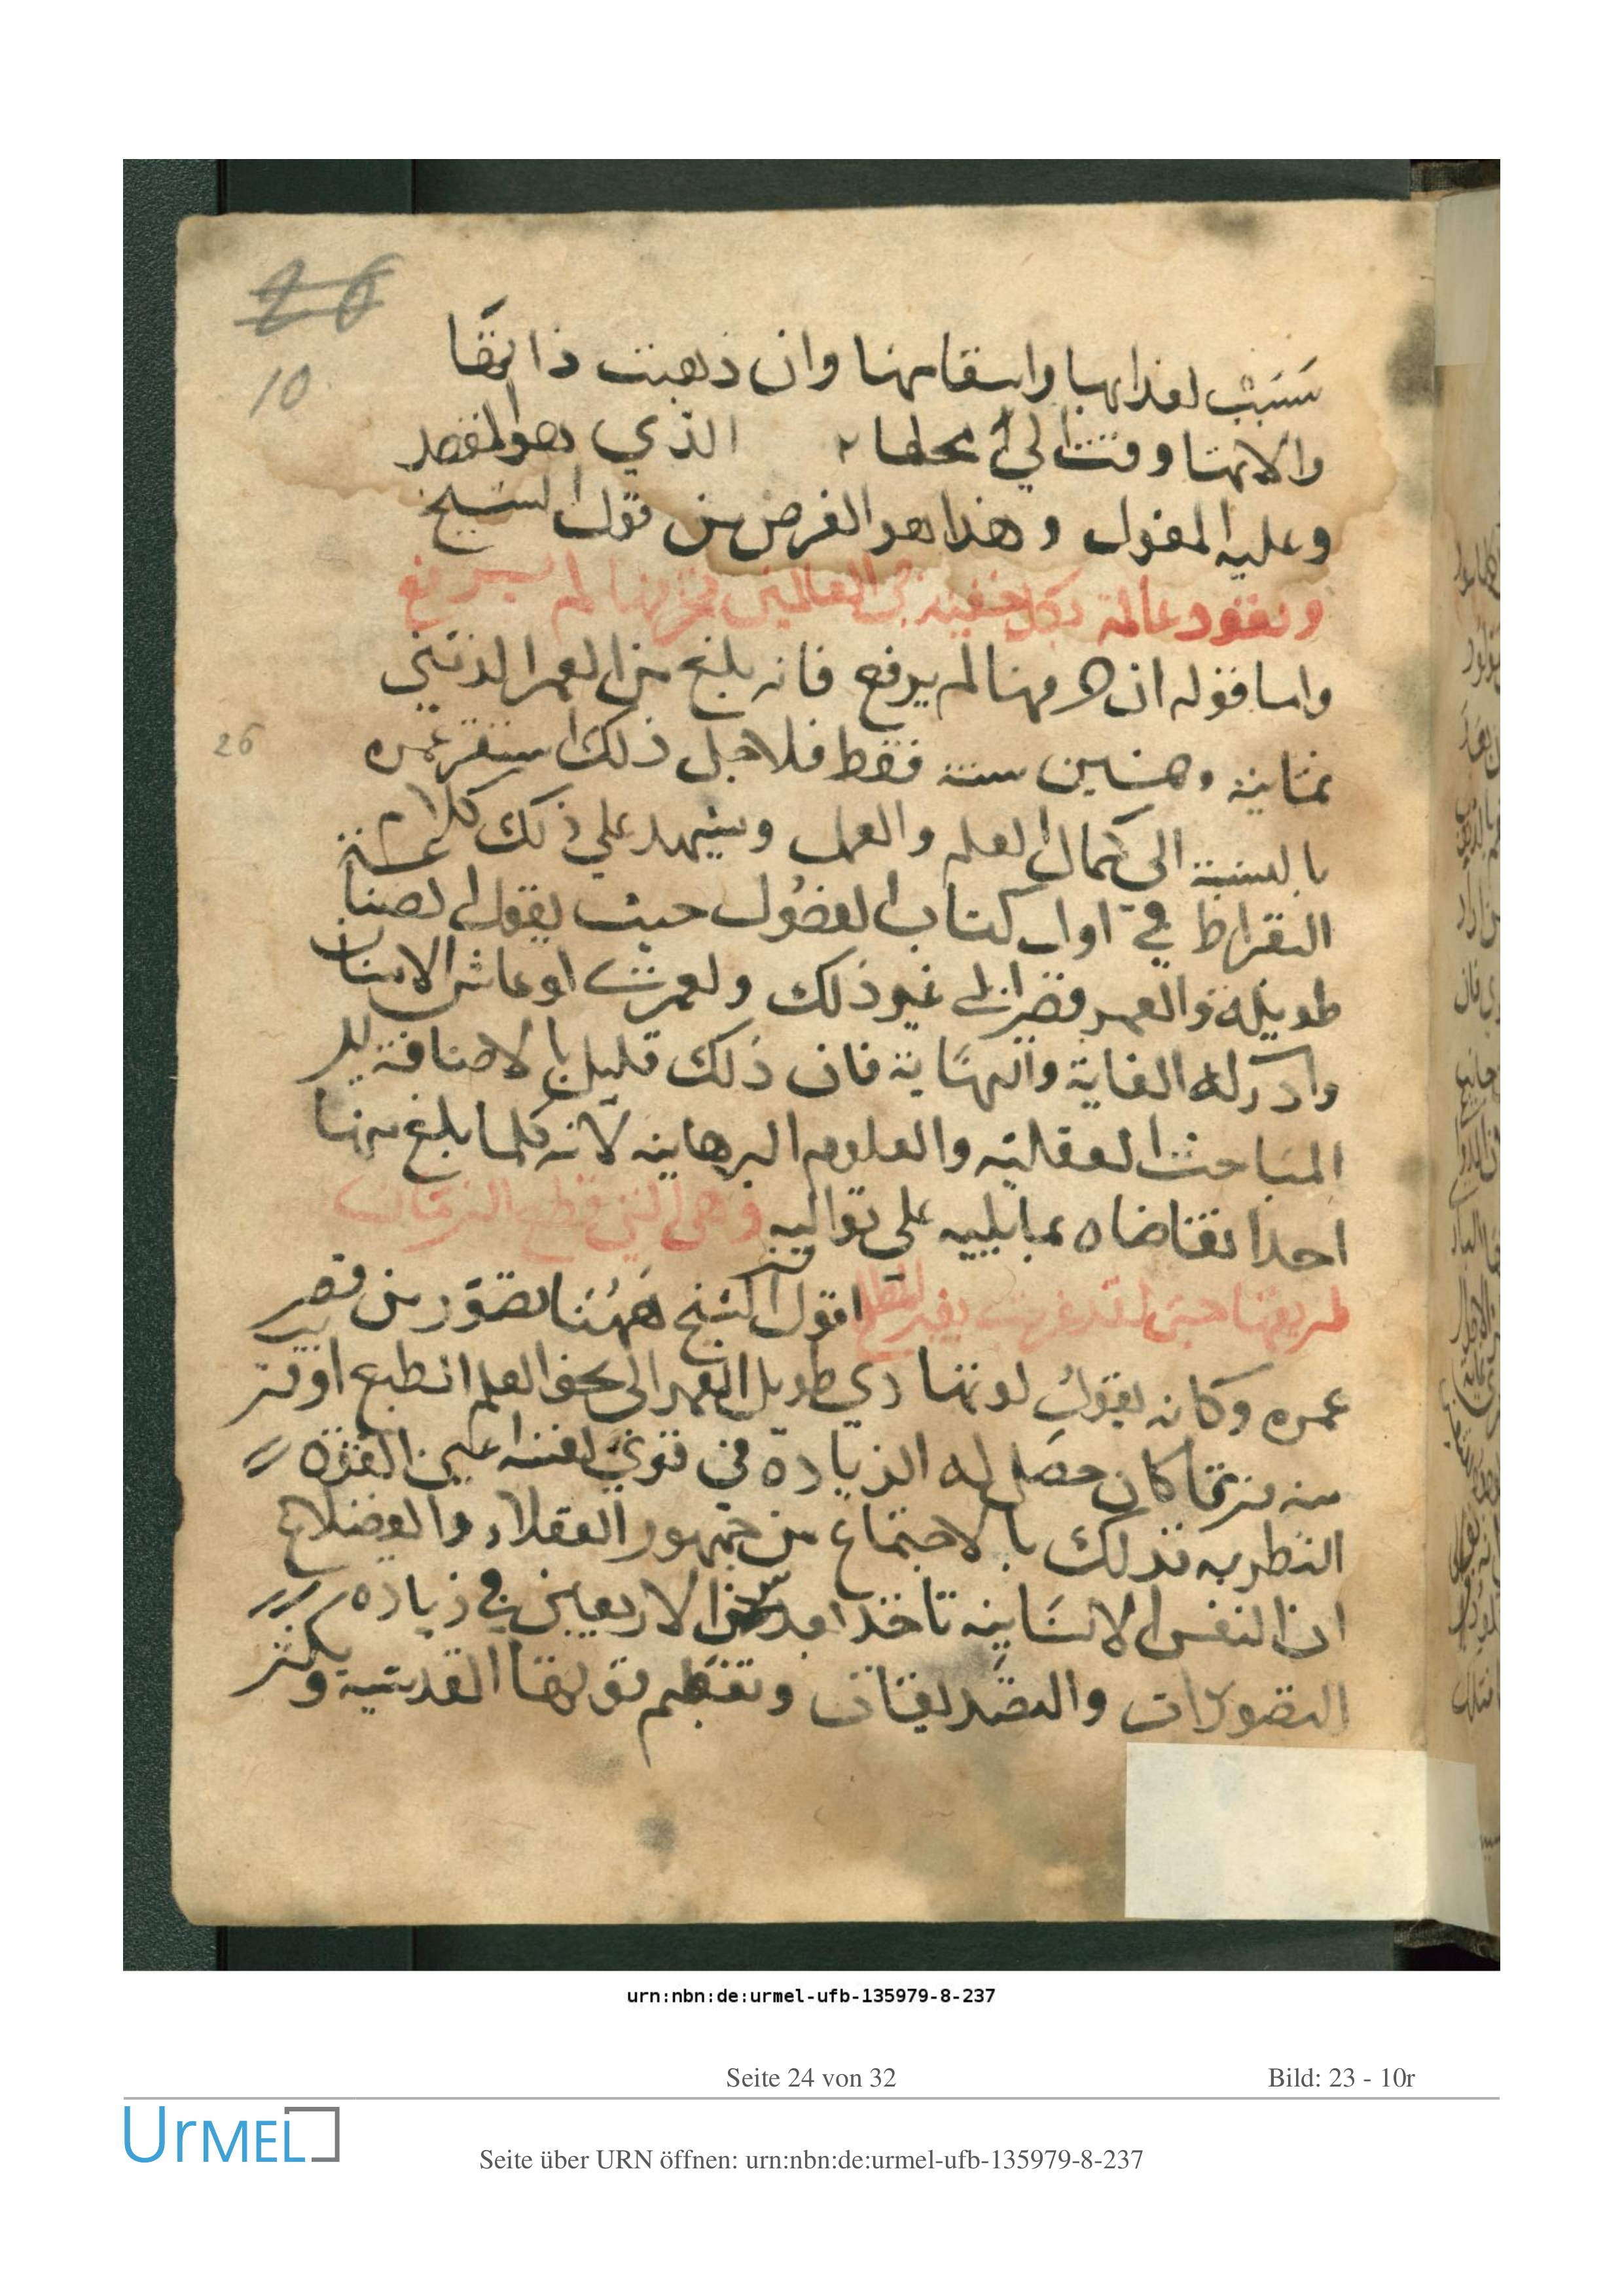 26
10
سبب لعذابها واسقامها وان ذهبت ذاتها
والانها وقتا الي محلها الذي هو المقصد
وعليه المعول وهذا هو الغرض من قول الشيخ
وتعود عالمة بكل خفية في العالمين فخرقها لم يرقع
واما قوله ان خرقها لم يرقع فانه بلغ من العمر الذنيني
26
ثمانية وخمسين سنة فقط فلاجل ذلك استقر عمره
بالنسبة الى كمال العلم والعمل ويشهد على ذلك كلام
البقراط في اول كتاب الفصول حيث يقول الصنا
طويلة والعمر قصير الى غير ذلك ولعمري لو عاش الانسان
وادركه الغاية والنهاية فان ذلك قليل بالاضافة
المباحث العقلية والعلوم البرهانية لانه كلما بلغ منها
احدا تقاضاه بما يليه على تواليه وهى التي قطع الزمان
طريقها حتى لقد غربت بغير المطلع اقول الشيخ ههنا تصور من قصر
عمره وكانه يقول لو تمادي طويل العمر الى نحو العلم الطبيع او
منه كان حصل له الزيادة في قوي نفسه اعني القوة
النظريه تدرك بالاجتماع من جمهور العقلاء والفضلاء
ان النفس الانسانيه تاخذ الاربعين في زياده
التصورات والتصديقات وتعظم قوتها القدسية ويكثر
urn:nbn:de:urmel-ufb-135979-8-237
Seite 24 von 32
Bild: 23 - 10r
UrMEL
Seite über URN öffnen: urn:nbn:de:urmel-ufb-135979-8-237